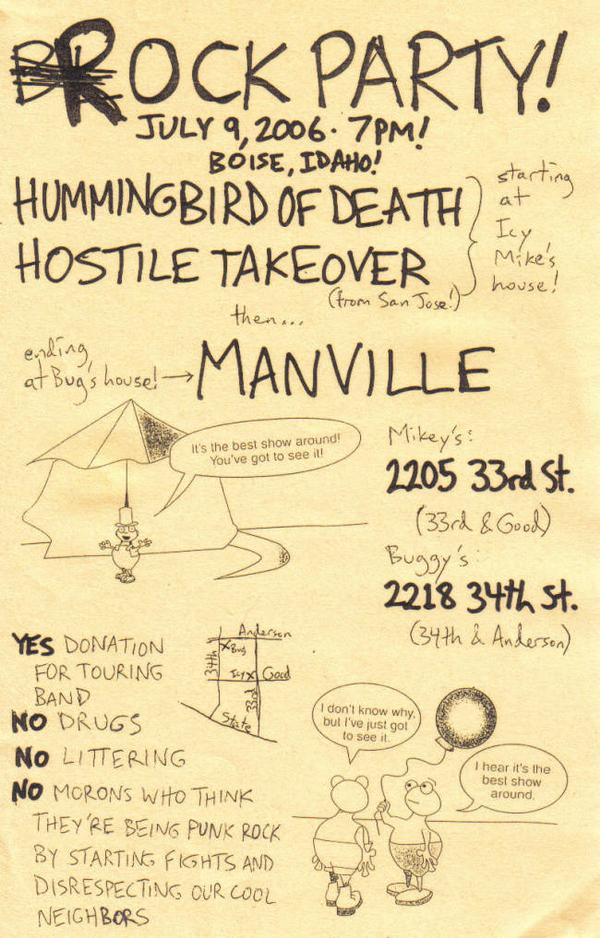 ROCK PARTY!
JULY 9, 2006 · 7PM!
BOISE, IDAHO!
HUMMINGBIRD OF DEATH
HOSTILE TAKEOVER
(from San Jose!)
starting
at
Icy
Mike's
house!
then...
ending
at Bug's house! →
MANVILLE
It's the best show around!
You've got to see it!
Mikey's:
2205 33rd St.
(33rd & Good)
Buggy's:
2218 34th St.
(34th & Anderson)
YES DONATION
FOR TOURING
BAND
NO DRUGS
NO LITTERING
NO MORONS WHO THINK
THEY'RE BEING PUNK ROCK
BY STARTING FIGHTS AND
DISRESPECTING OUR COOL
NEIGHBORS
Anderson
34th
X Bug
Icy X
Good
33rd
State
I don't know why,
but I've just got
to see it.
I hear it's the
best show
around.